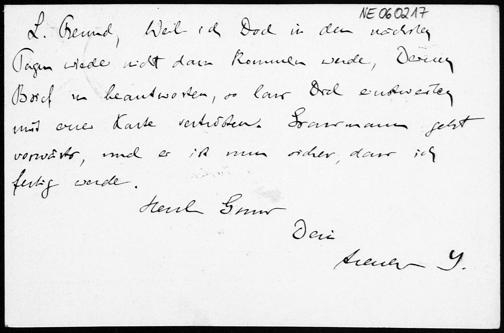 NE060217
L. Freund, Weil ich doch in den nächsten
Tagen wieder nicht dazu kommen werde, Deinen
Brief zu beantworten, so lass Dich einstweilen
mit einer Karte vertrösten. geht
vorwärts, und er ist nun sicher, dass ich
fertig werde.
Herzl. Gruss
Dein